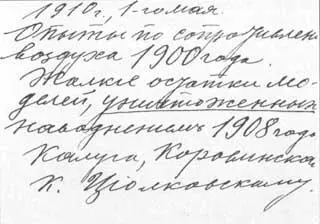 1910 г., 1-го мая.
Опыты по сопротивлен
воздуха 1900 года.
Жалкие остатки мо-
делей, уничтоженных
наводнением 1908 года
Калуга, Коровинская
К. Ціолковскому.